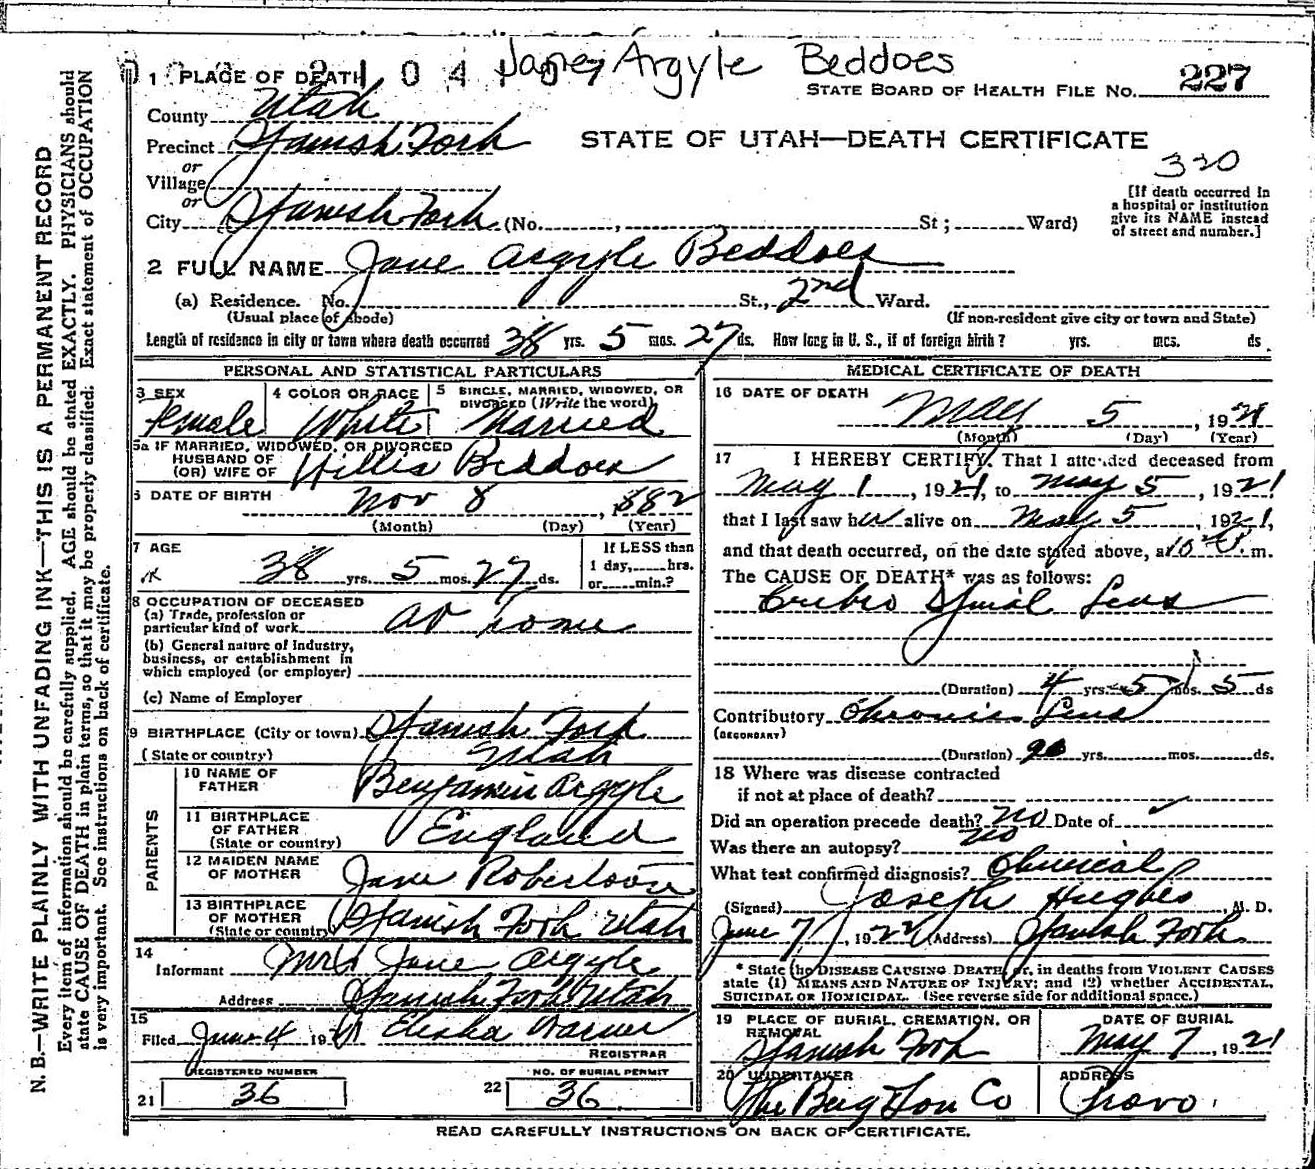 Jane Argyle Beddoes
1 PLACE OF DEATH
STATE BOARD OF HEALTH FILE No. 227
County Utah
STATE OF UTAH—DEATH CERTIFICATE
Precinct Spanish Fork
330
or
Village
or
[If death occurred in
a hospital or institution
give its NAME instead
of street and number.]
City Spanish Fork (No. , St ; Ward)
2 FULL NAME Jane Argyle Beddoes
(a) Residence. No. St., 2nd Ward.
(Usual place of abode) (If non-resident give city or town and State)
Length of residence in city or town where death occurred 38 yrs. 5 mos. 27 ds. How long in U. S., if of foreign birth? yrs. mos. ds.
PERSONAL AND STATISTICAL PARTICULARS
3 SEX 4 COLOR OR RACE 5 SINGLE, MARRIED, WIDOWED, OR
DIVORCED (Write the word)
Female White Married
5a IF MARRIED, WIDOWED, OR DIVORCED
HUSBAND OF
(OR) WIFE OF Willis Beddoes
6 DATE OF BIRTH Nov 8, 1882
(Month) (Day) (Year)
7 AGE If LESS than
1 day, hrs.
38 yrs. 5 mos. 27 ds. or min.?
8 OCCUPATION OF DECEASED
(a) Trade, profession or
particular kind of work at home
(b) General nature of Industry,
business, or establishment in
which employed (or employer)
(c) Name of Employer
9 BIRTHPLACE (City or town) Spanish Fork
(State or country) Utah
PARENTS
10 NAME OF
FATHER Benjamin Argyle
11 BIRTHPLACE
OF FATHER
(State or country) England
12 MAIDEN NAME
OF MOTHER Jane Robertson
13 BIRTHPLACE
OF MOTHER
(State or country) Spanish Fork Utah
14
Informant Mrs Jane Argyle
Address Spanish Fork Utah
15
Filed June 4 19 Elisha Warner
REGISTRAR
REGISTERED NUMBER NO. OF BURIAL PERMIT
21 36 22 36
MEDICAL CERTIFICATE OF DEATH
16 DATE OF DEATH
May 5, 1921
(Month) (Day) (Year)
17 I HEREBY CERTIFY, That I attended deceased from
May 1, 1921, to May 5, 1921
that I last saw her alive on May 5, 1921,
and that death occurred, on the date stated above, at 10 m.
The CAUSE OF DEATH* was as follows:
Spinal
(Duration) 4 yrs. 5 mos. 5 ds
Contributory Chronic
(SECONDARY)
(Duration) yrs. mos. ds.
18 Where was disease contracted
if not at place of death?
Did an operation precede death? no Date of
Was there an autopsy? no
What test confirmed diagnosis?
(Signed) Joseph Hughes, M. D.
June 7, 1922 (Address) Spanish Fork
* State the DISEASE CAUSING DEATH, or, in deaths from VIOLENT CAUSES
state (1) MEANS AND NATURE OF INJURY; and (2) whether ACCIDENTAL,
SUICIDAL OR HOMICIDAL. (See reverse side for additional space.)
19 PLACE OF BURIAL, CREMATION, OR
REMOVAL DATE OF BURIAL
Spanish Fork May 7, 1921
20 UNDERTAKER ADDRESS
The Berg Son Co Provo.
READ CAREFULLY INSTRUCTIONS ON BACK OF CERTIFICATE.
N. B.—WRITE PLAINLY WITH UNFADING INK—THIS IS A PERMANENT RECORD
Every item of information should be carefully supplied. AGE should be stated EXACTLY. PHYSICIANS should
state CAUSE OF DEATH in plain terms, so that it may be properly classified. Exact statement of OCCUPATION
is very important. See instructions on back of certificate.